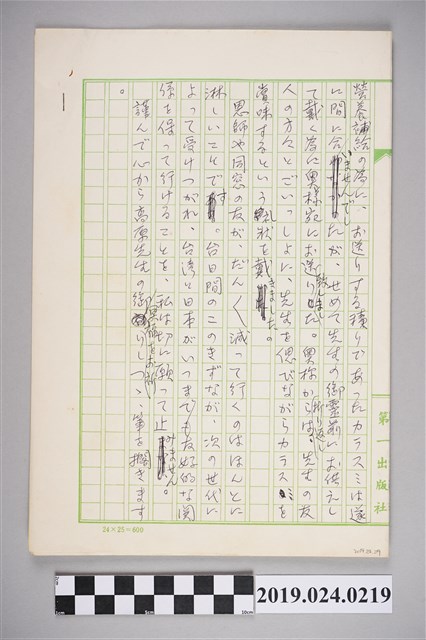 營養補給の為に、お送りする積りであったカラスミは遂
に間に合いませんでしたが、せめて先生の御霊前にお供えし
て戴く為に奥様宛にお送り致しました。奥様からは、折り返し先生の友
人の方々とごいっしょに、先生を偲びながらカラスミを
賞味するという礼状を戴きました。
恩師や同窓の友が、だん〱減って行くのはほんとに
淋しいことです。台日間のこのきずなが、次の世代に
よって受けつがれ、台湾と日本がいつまでも友好的な関
係を保って行けることを、私は切に願って止みません。
謹んで心から高原先生の御冥福をお祈りしつゝ、筆を擱きます
。
第一出版社
24×25=600
2019.024.0219
0cm
5cm
10cm